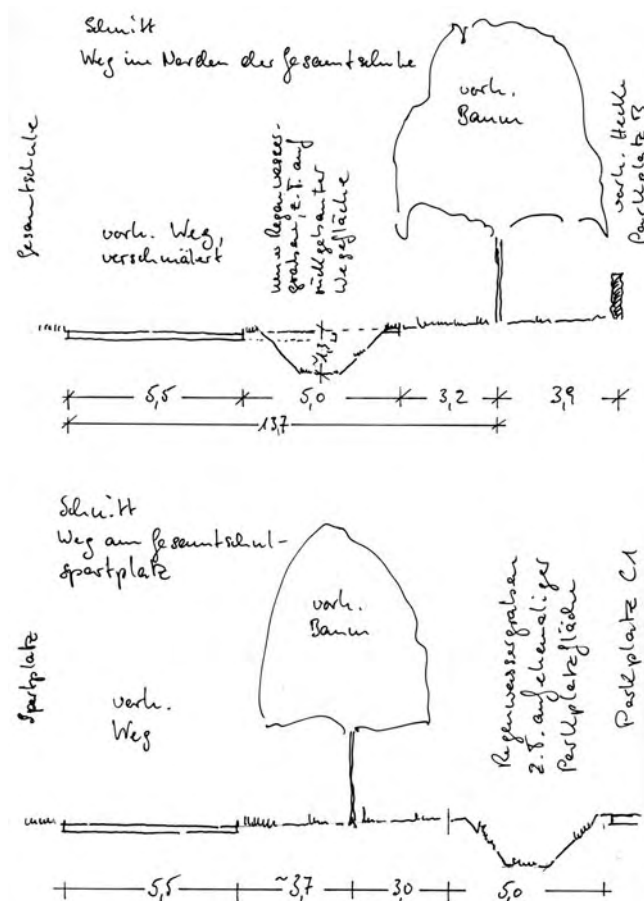 Schnitt
Weg im Norden der Gesamtschule
Gesamtschule
vorh. Weg,
verschmälert
neuer Regenwasser-
graben, z.T. auf
rückgebauter
Wegefläche
vorh.
Baum
vorh. Hecke
Parkplatz B
~1,3
5,5
5,0
3,2
3,9
13,7
Schnitt
Weg am Gesamtschul-
sportplatz
Sportplatz
vorh.
Weg
vorh.
Baum
Regenwassergraben
z.T. auf ehemaliger
Parkplatzfläche
Parkplatz C1
5,5
~3,7
3,0
5,0